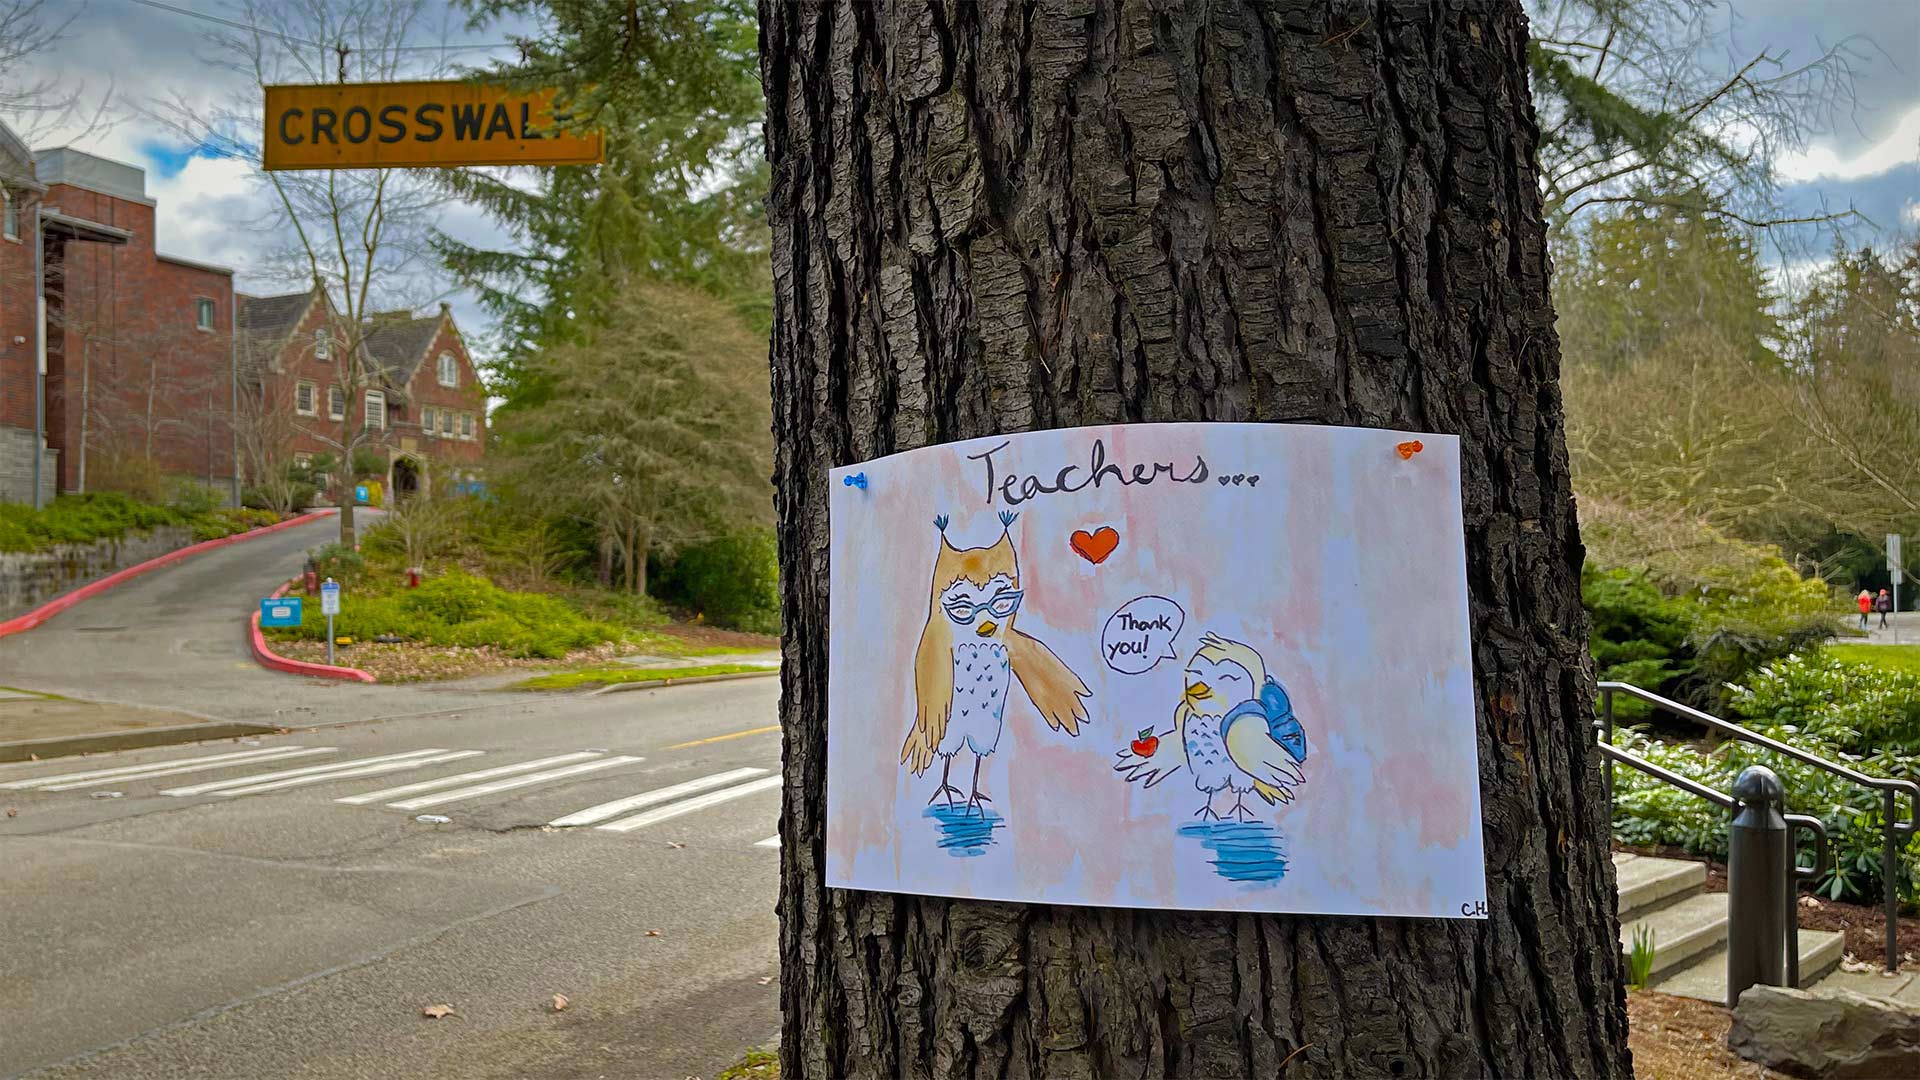 CROSSWALK
Teachers...
Thank
you!
C.H.